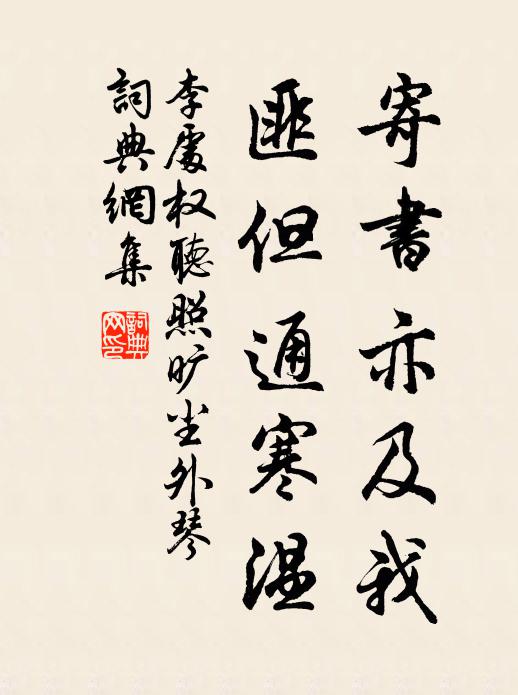 寄書亦及我
匪但通寒温
李處权聽照旷尘外琴
詞典網集
詞典网印